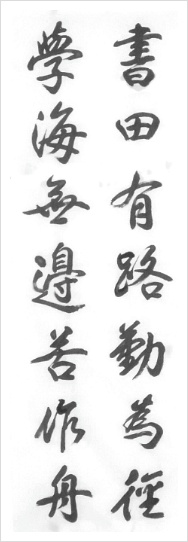 書田有路勤為徑
學海無邊苦作舟